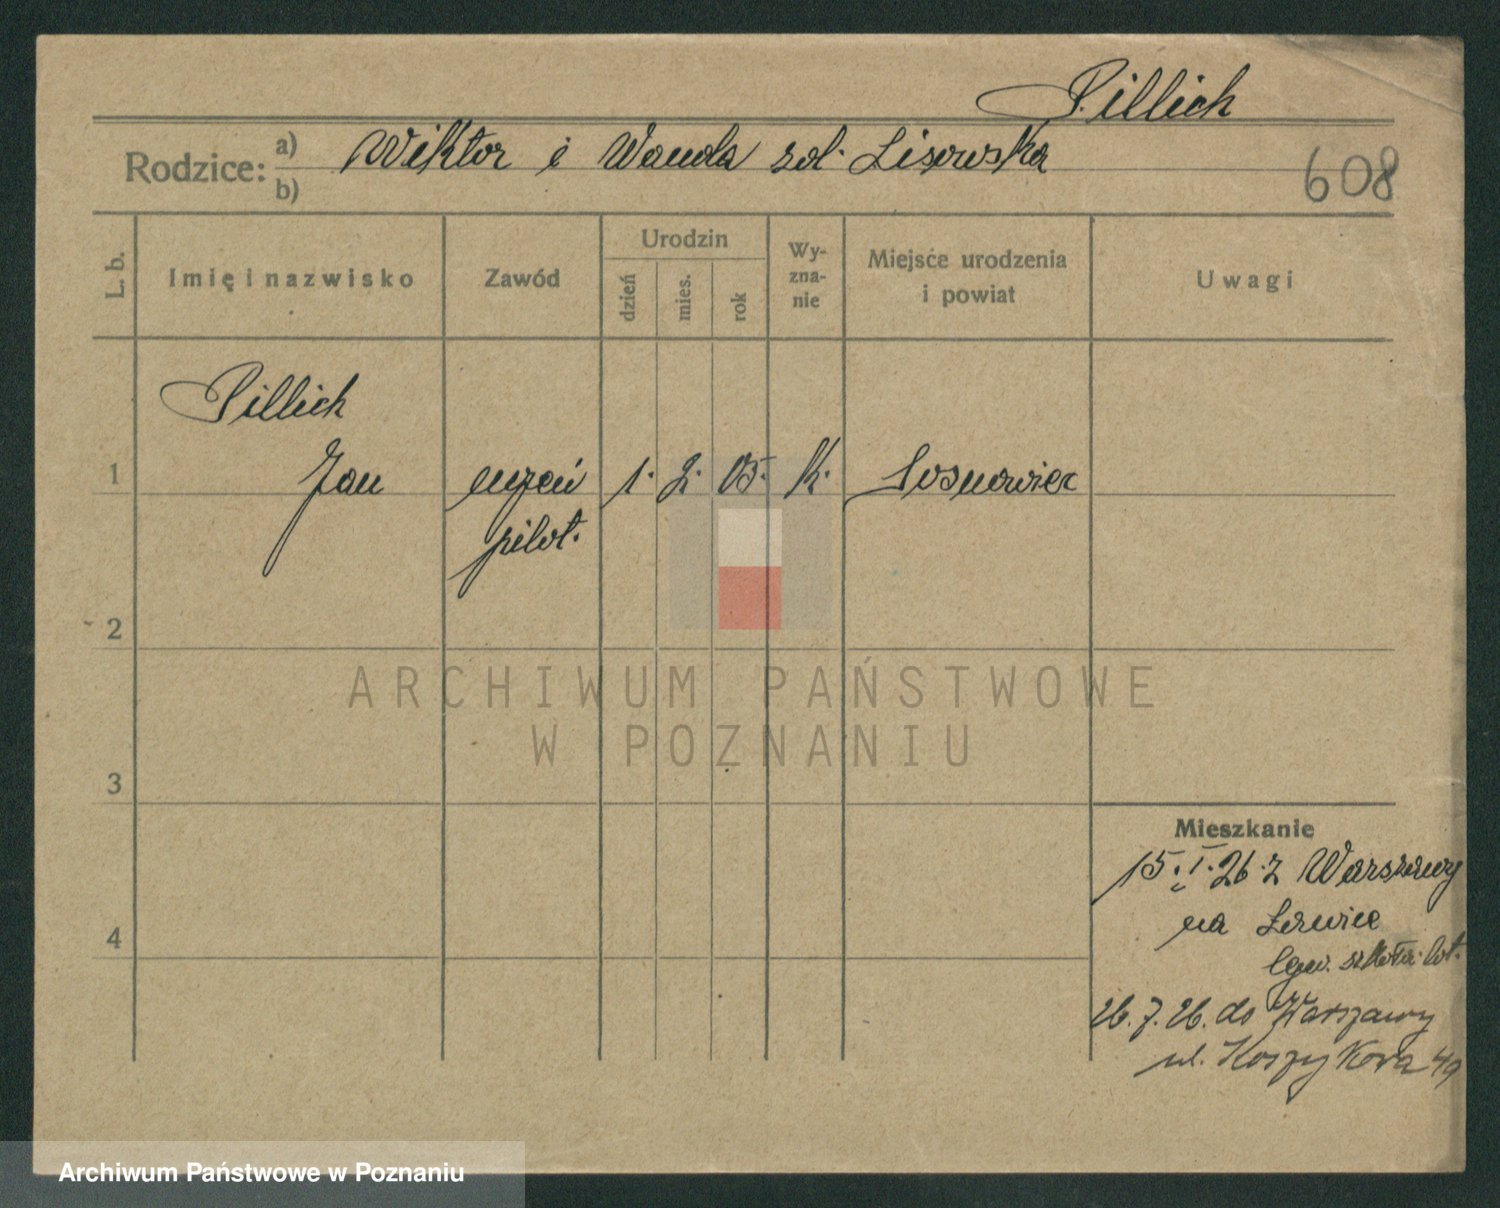 Pillich
Rodzice: a) Wiktor i Wanda zd. Lisowska
b)
608
L. b.
Imię i nazwisko
Zawód
Urodzin
dzień
mies.
rok
Wy-
zna-
nie
Miejsce urodzenia
i powiat
Uwagi
Pillich
1 Jan uczeń 1. 2. 05. k. Sosnowiec
pilot.
2
3
4
ARCHIWUM PAŃSTWOWE
W POZNANIU
Mieszkanie
15. I. 26. z Warszawy
na Ławicę
szkoła lot.
26. 7. 26. do Warszawy
ul. Koszykowa 49
Archiwum Państwowe w Poznaniu